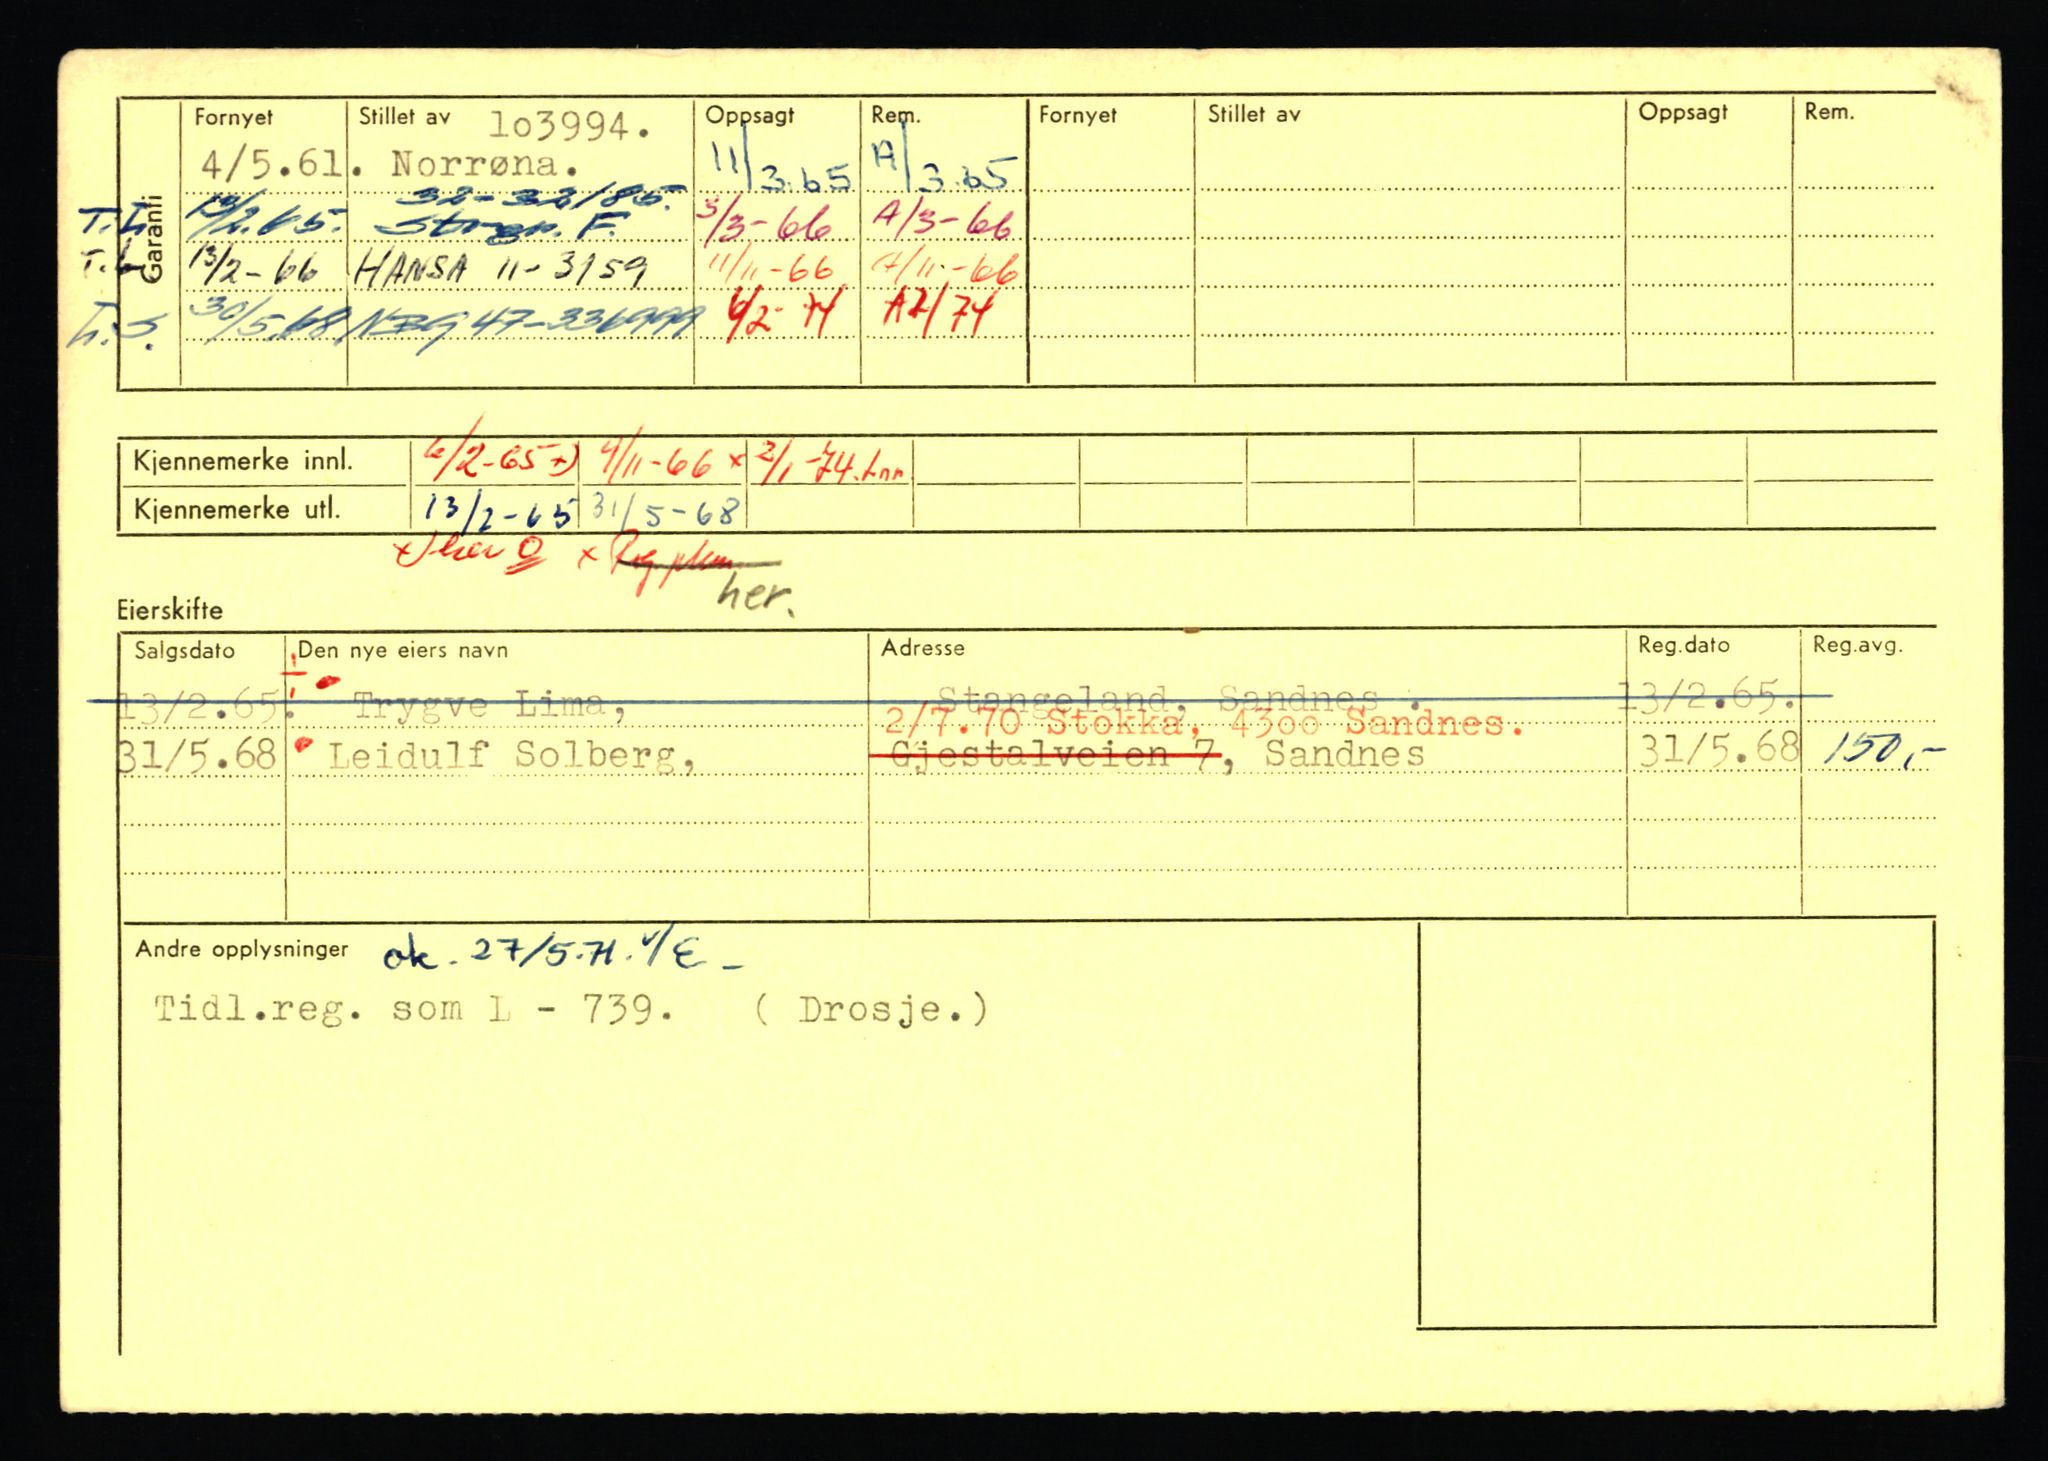 Fornyet Stillet av lo3994. Oppsagt Rem. Fornyet Stillet av Oppsagt Rem.
Garanti
4/5.61. Norrøna. 11/3.65 A/3.65
32-32/85.
T.L. 13/2.65. Storgr. F. 3/3-66 A/3-66
T.L 13/2-66 HANSA 11-3159 11/11-66 A/11-66
L.S. 30/5.68 NBG 47-336999 6/2-74 A2/74
Kjennemerke innl. 6/2-65 x) 9/11-66 x 2/1-74.
Kjennemerke utl. 13/2-65 31/5-68
x) her 0 x
her.
Eierskifte
Salgsdato Den nye eiers navn Adresse Reg.dato Reg.avg.
13/2.65. Trygve Lima, Stangeland, Sandnes . 13/2.65.
2/7.70 Stokka, 43oo Sandnes.
31/5.68 Leidulf Solberg, Gjestalveien 7, Sandnes 31/5.68 150,-
Andre opplysninger ok. 27/5.71. V/E -
Tidl.reg. som L - 739. ( Drosje.)